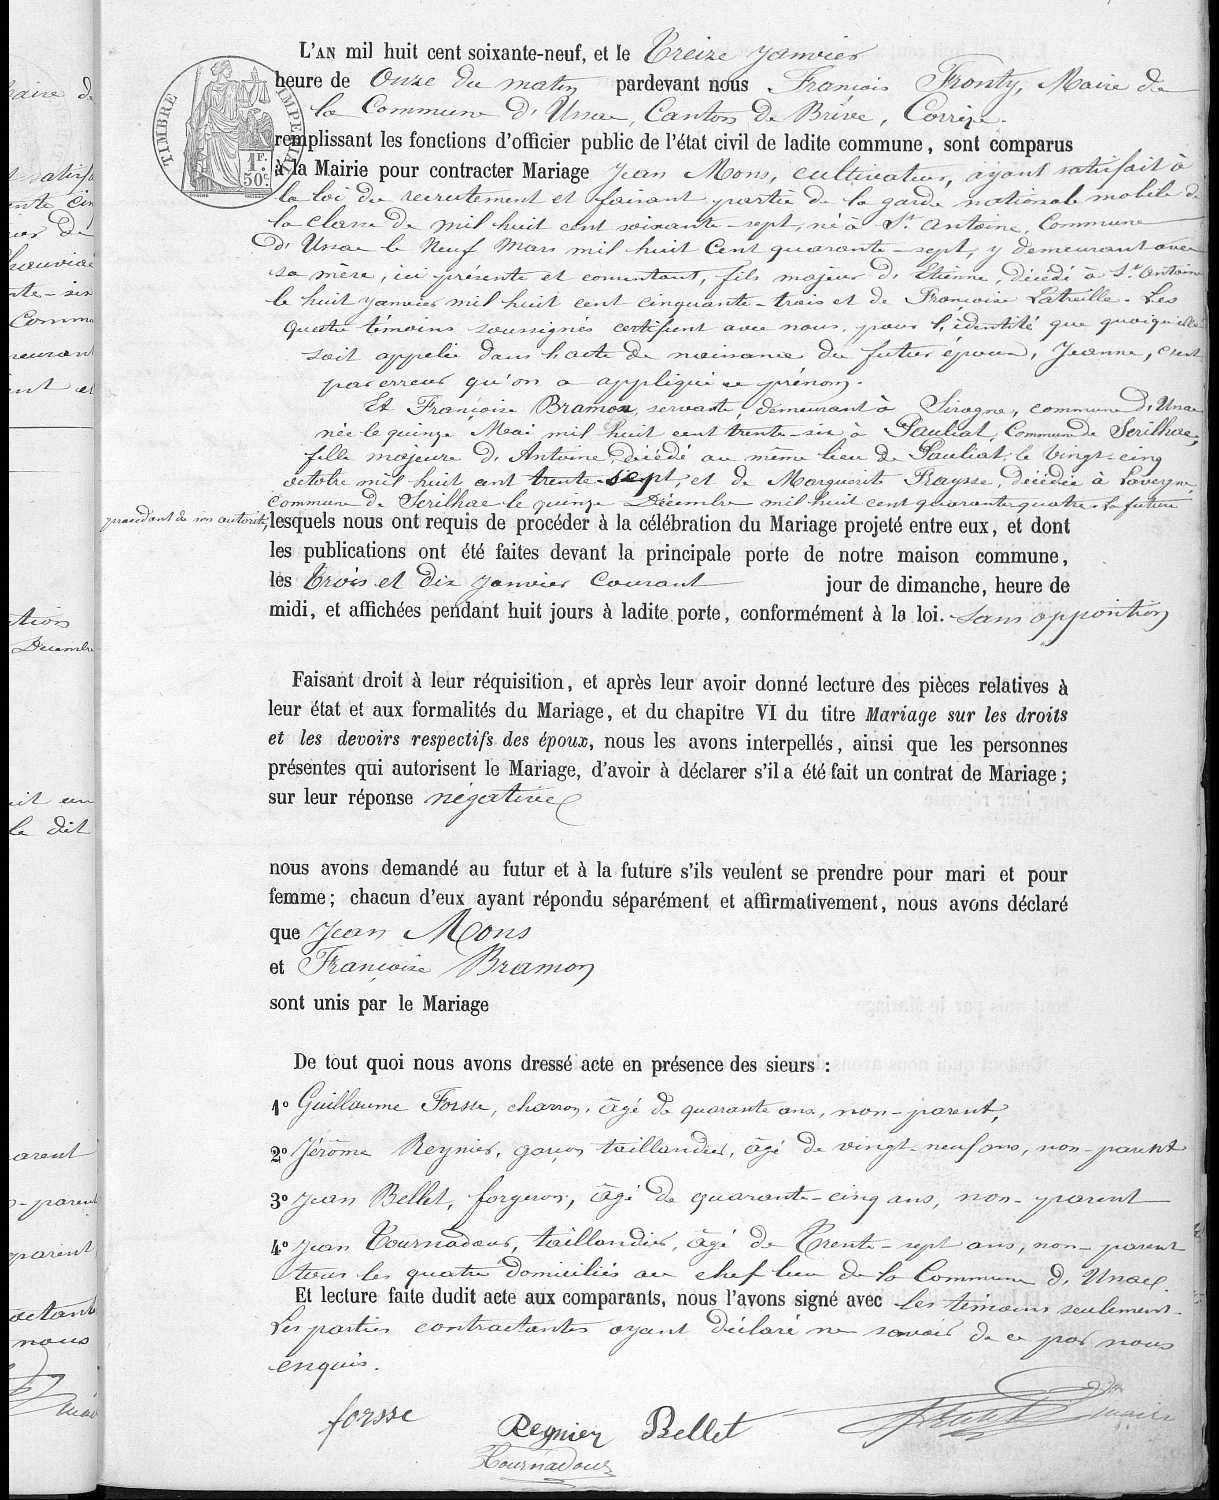 L'AN mil huit cent soixante-neuf, et le Treize Janvier
heure de Onze du matin pardevant nous François Fronty, Maire de
la Commune d'Ussac, Canton de Brive, Corrèze.
remplissant les fonctions d'officier public de l'état civil de ladite commune, sont comparus
à la Mairie pour contracter Mariage Jean Mons, cultivateur, ayant satisfait à
la loi du recrutement et faisant partie de la garde nationale mobile de
la classe de mil huit cent soixante-sept, né à St Antoine, Commune
d'Ussac le Neuf Mars mil huit Cent quarante-sept, y demeurant avec
sa mère, ici présente et consentant, fils majeur d'Etienne, décédé à St Antoine
le huit Janvier mil huit cent cinquante-trois et de Françoise Latreille. Les
quatre témoins soussignés certifient avec nous, pour l'identité que quoiqu'elle
soit appelée dans l'acte de naissance du futur époux, Jeanne, c'est
par erreur qu'on a appliqué ce prénom.
Et Françoise Bramon, servante, demeurant à Sirogne, commune d'Ussac
née le quinze Mai mil huit cent trente-six à Pauliat, Commune de Sérilhac,
fille majeure d'Antoine, décédé au même lieu de Pauliat, le vingt-cinq
octobre mil huit cent trente-sept, et de Marguerite Fraysse, décédée à Lavergne,
commune de Sérilhac le quinze Décembre mil huit cent quarante quatre. La future
procédant de son autorité,
lesquels nous ont requis de procéder à la célébration du Mariage projeté entre eux, et dont
les publications ont été faites devant la principale porte de notre maison commune,
les Trois et dix Janvier Courant jour de dimanche, heure de
midi, et affichées pendant huit jours à ladite porte, conformément à la loi. Sans opposition
Faisant droit à leur réquisition, et après leur avoir donné lecture des pièces relatives à
leur état et aux formalités du Mariage, et du chapitre VI du titre Mariage sur les droits
et les devoirs respectifs des époux, nous les avons interpellés, ainsi que les personnes
présentes qui autorisent le Mariage, d'avoir à déclarer s'il a été fait un contrat de Mariage;
sur leur réponse négative
nous avons demandé au futur et à la future s'ils veulent se prendre pour mari et pour
femme; chacun d'eux ayant répondu séparément et affirmativement, nous avons déclaré
que Jean Mons
et Françoise Bramon
sont unis par le Mariage
De tout quoi nous avons dressé acte en présence des sieurs :
1° Guillaume Forsse, charron, âgé de quarante ans, non-parent,
2° Jérôme Reynier, garçon taillandier, âgé de vingt-neuf ans, non-parent
3° Jean Bellet, forgeron, âgé de quarante-cinq ans, non-parent
4° Jean Tournadour, taillandier, âgé de Trente-sept ans, non-parent
tous les quatre domiciliés au chef lieu de la Commune d'Ussac.
Et lecture faite dudit acte aux comparants, nous l'avons signé avec les témoins seulement.
Les parties contractantes ayant déclaré ne savoir de ce par nous
enquis.
forsse
Regnier Bellet
Tournadour
maire
TIMBRE IMPERIAL
1F.
50c.